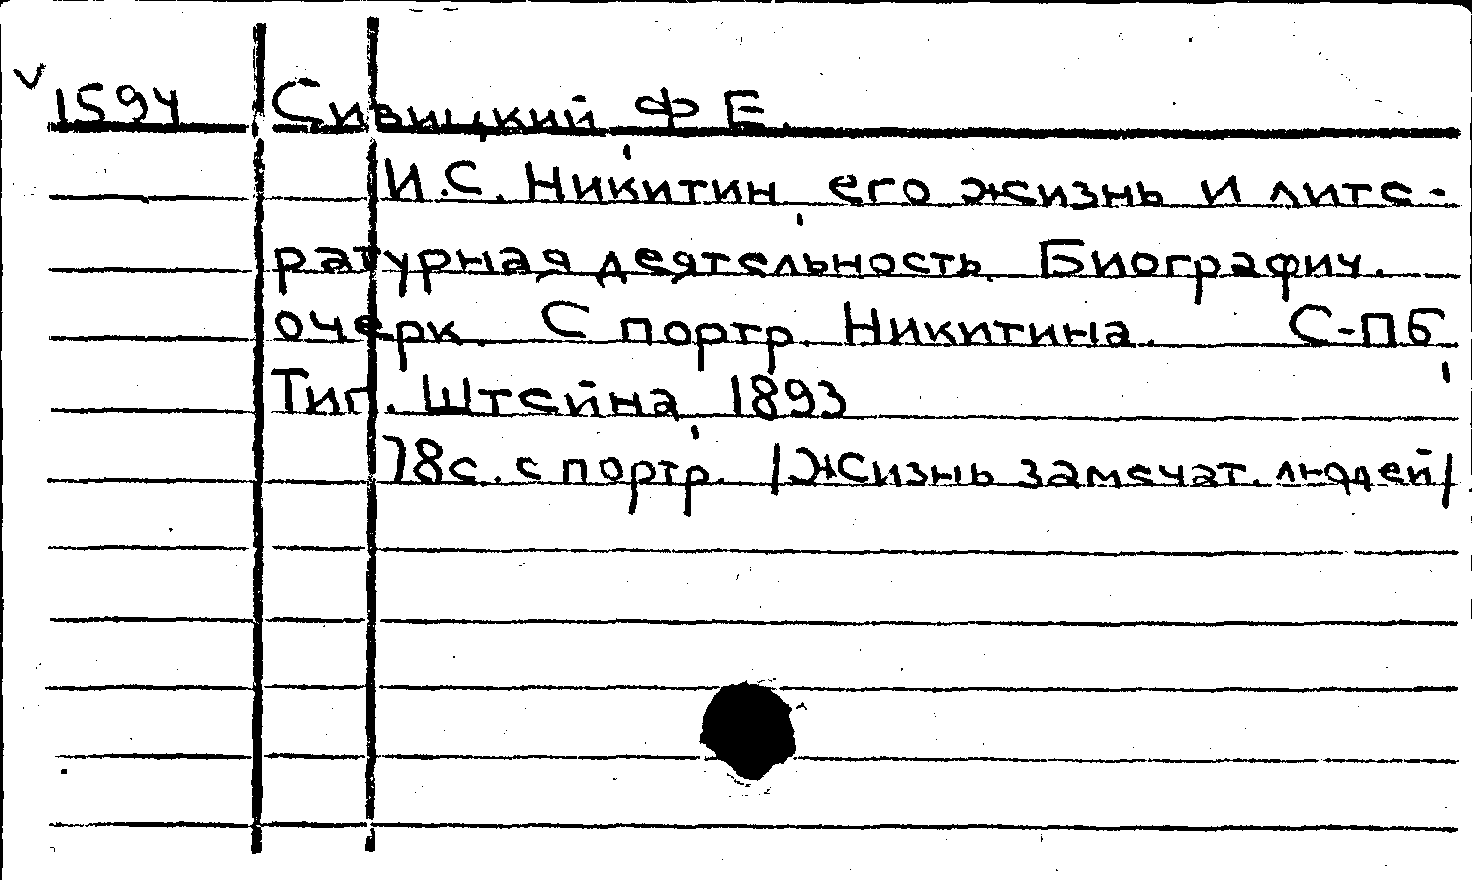 √ 1594 Сивицкий, Ф Е.
И.С. Никитин, его жизнь и лите-
ратурная деятельность. Биографич.
очерк. С портр. Никитина. С-ПБ,
Тип. Штейна, 1893
78с. с портр. /Жизнь замечат. людей/